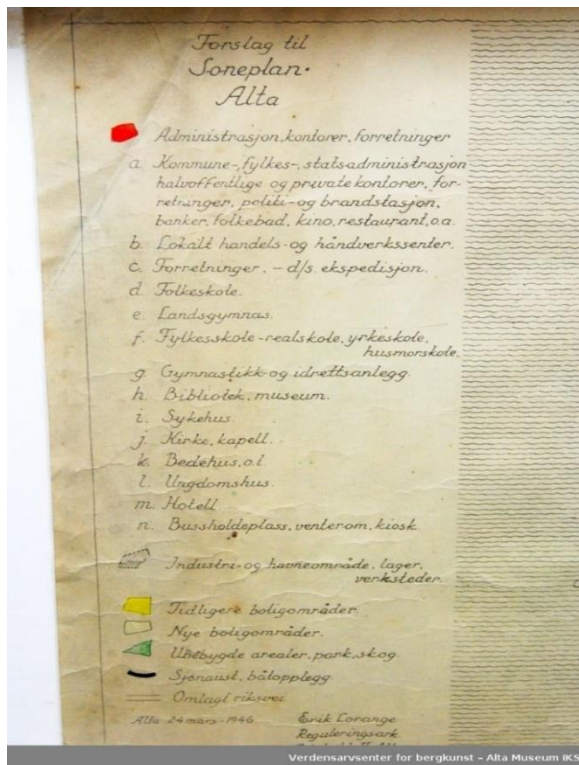 Forslag til
Soneplan.
Alta
Administrasjon, kontorer, forretninger
a. Kommune-, fylkes-, statsadministrasjon
halvoffentlige og private kontorer, for-
retninger, politi- og brandstasjon,
banker, folkebad, kino, restaurant, o.a.
b. Lokalt handels- og håndverkssenter.
c. Forretninger. - d/s. ekspedisjon.
d. Folkeskole.
e. Landsgymnas.
f. Fylkesskole - realskole, yrkeskole,
husmorskole.
g. Gymnastikk- og idrettsanlegg.
h. Bibliotek, museum.
i. Sykehus.
j. Kirke, kapell.
k. Bedehus, o.l.
l. Ungdomshus.
m. Hotell
n. Bussholdeplass, venterom, kiosk
Industri- og havneområde, lager,
verksteder.
Tidligere boligområder.
Nye boligområder.
Ubebygde arealer, park, skog.
Sjønaust, båtopplegg
Omlagt riksvei
Alta 24 mars - 1946
Erik Lorange
Reguleringsark.
Verdensarvsenter for bergkunst - Alta Museum IKS